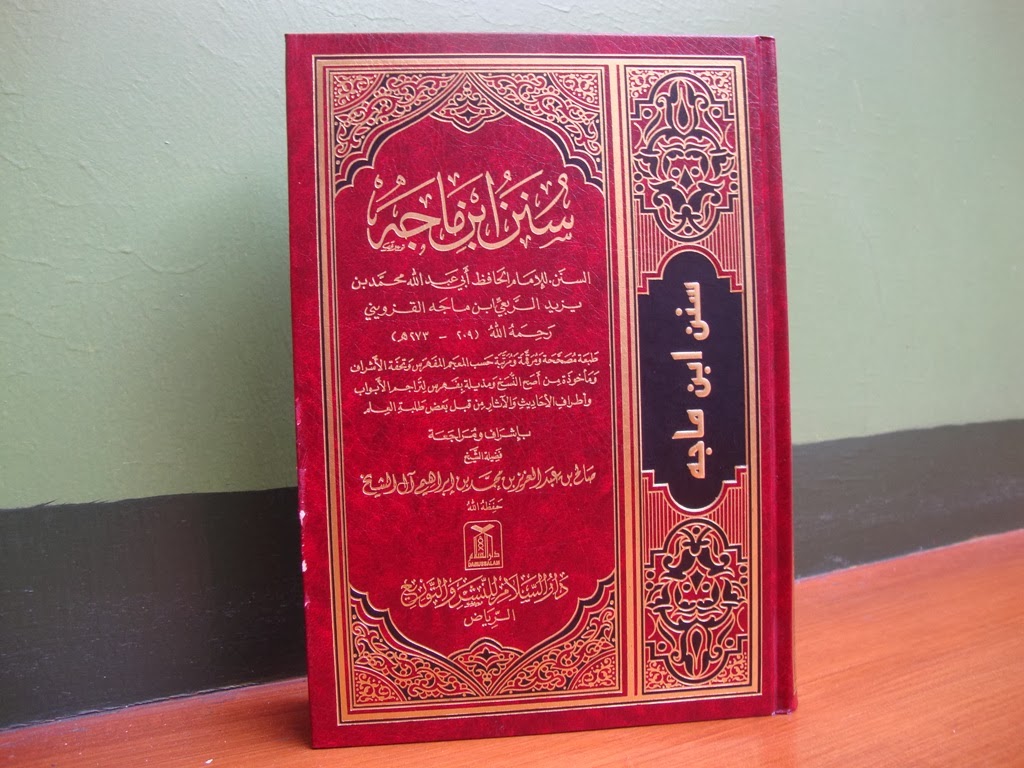 سُنَنُ ابْنِ مَاجَهْ
السنن. للإمام الحافظ أبي عبد الله محمّد بن
يزيد الربعي ابن ماجه القزويني
رَحِمَهُ اللهُ (٢٠٩ - ٢٧٣هـ)
طبعة مصححة ومرقمة ومرتبة حسب المعجم المفهرس وتحفة الأشراف
ومأخوذة من أصح النسخ ومذيلة بفهرس لتراجم الأبواب
وأطراف الأحاديث والآثار من قبل بعض طلبة العلم
بإشراف ومراجعة
فضيلة الشيخ
صالح بن عبد العزيز بن محمد بن إبراهيم آل الشيخ
حفظه الله
دار السلام
DARUSSALAM
دار السلام للنشر والتوزيع
الرياض
سنن ابن ماجه